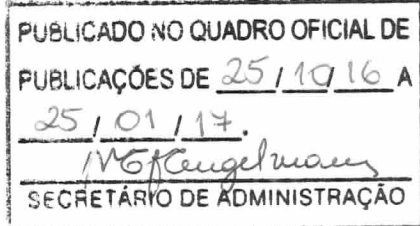 PUBLICADO NO QUADRO OFICIAL DE
PUBLICAÇÕES DE 25 / 10 / 16 A
25 / 01 / 17.
SECRETÁRIO DE ADMINISTRAÇÃO